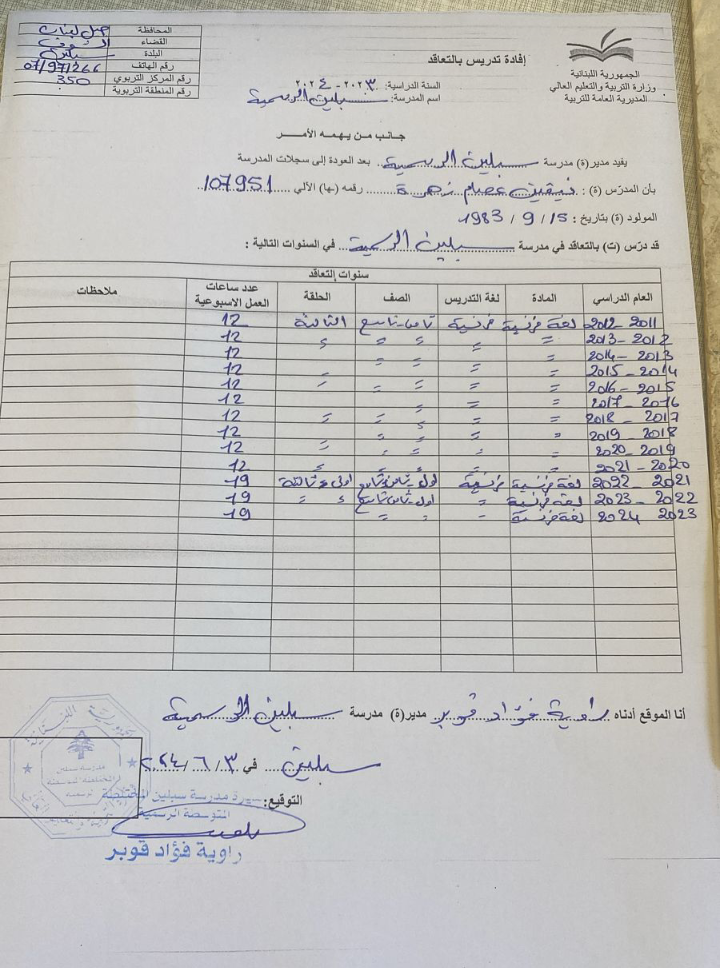 المحافظة جبل لبنان
القضاء الشوف
البلدة سبلين
رقم الهاتف 07/971266
رقم المركز التربوي 350
رقم المنطقة التربوية
الجمهورية اللبنانية
وزارة التربية والتعليم العالي
المديرية العامة للتربية
إفادة تدريس بالتعاقد
السنة الدراسية: ٢٠٢٣ - ٢٠٢٤
اسم المدرسة: سبلين الرسمية
جانب من يهمه الأمر
يفيد مدير(ة) مدرسة سبلين الرسمية بعد العودة إلى سجلات المدرسة
بأن المدرّس (ة): نيفين عصام زهرة رقمه (ـها) الآلي 107951
المولود (ة) بتاريخ: 15/ 9 / 1983
قد درّس (ت) بالتعاقد في مدرسة سبلين الرسمية في السنوات التالية :
سنوات التعاقد
العام الدراسي المادة لغة التدريس الصف الحلقة عدد ساعات العمل الاسبوعية ملاحظات
2011 - 2012 لغة فرنسية فرنسية ثامن-تاسع الثالثة 12
2012 - 2013 = = = = = 12
2013 - 2014 = = = = 12
2014 - 2015 = = = = = 12
2015 - 2016 = = = = = 12
2016 - 2017 = = = 12
2017 - 2018 = = = = = 12
2018 - 2019 = = = = 12
2019 - 2020 = = = = = 12
2020 - 2021 = = = = 12
2021 - 2022 لغة فرنسية فرنسية أول-ثامن-تاسع أولى وثالثة 19
2022 - 2023 لغة فرنسية = أول-ثامن تاسع = = 19
2023 - 2024 لغة فرنسية = = = 19
أنا الموقع أدناه راوية فؤاد قوبر مدير(ة) مدرسة سبلين الرسمية
سبلين في ٣/ ٦/ ٢٠٢٤
التوقيع:
مديرة مدرسة سبلين المختلطة
المتوسطة الرسمية
راوية فؤاد قوبر